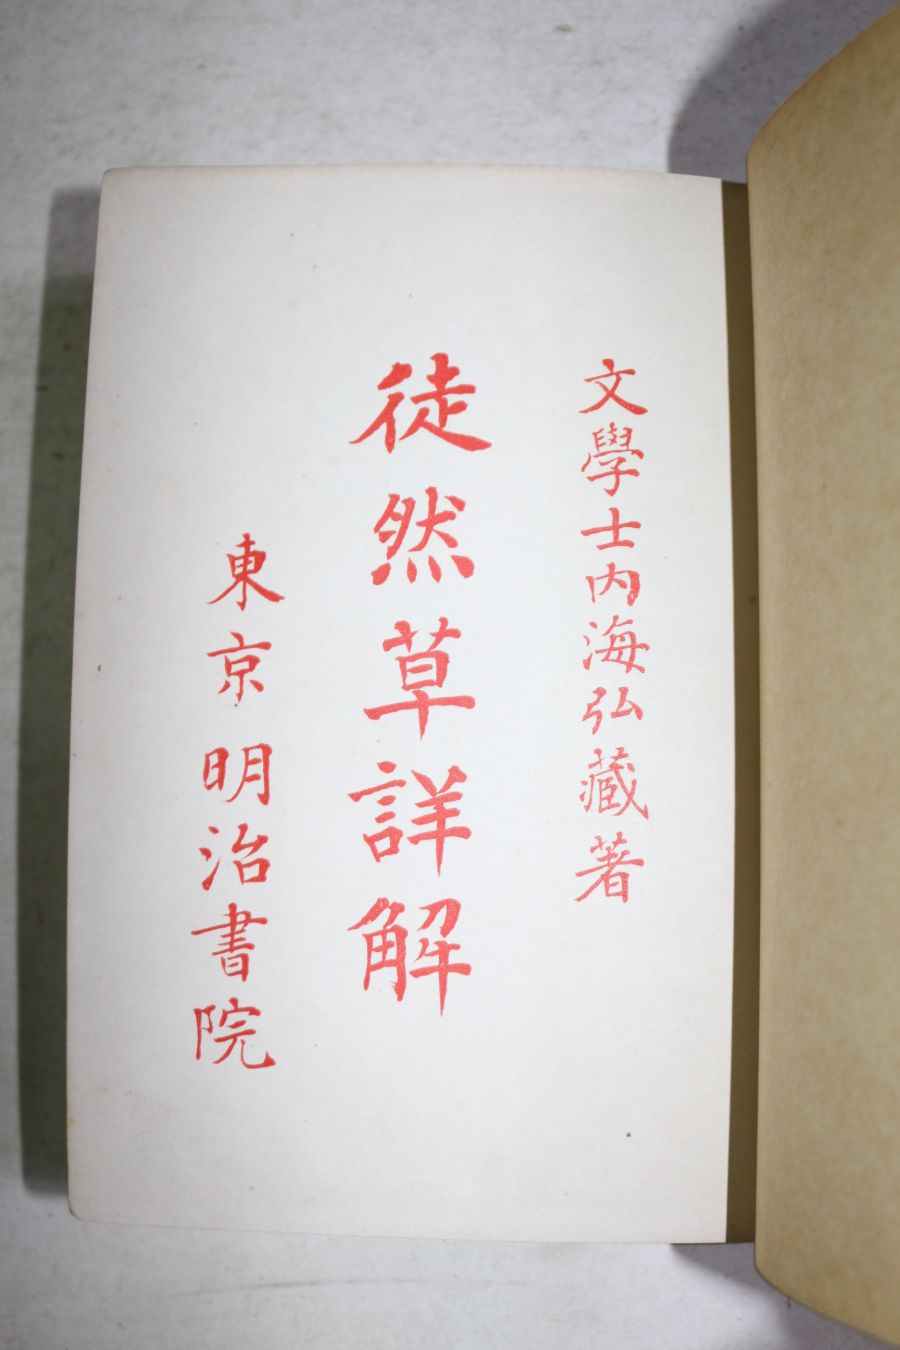 文學士内海弘藏著
徒然草詳解
東京明治書院